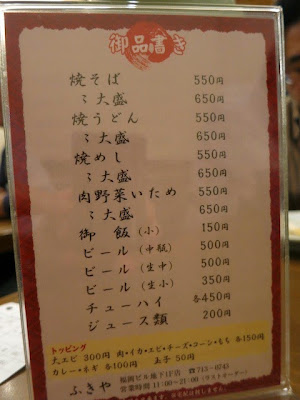 御品書き
焼そば 550円
〃大盛 650円
焼うどん 550円
〃大盛 650円
焼めし 550円
〃大盛 650円
肉野菜いため 550円
〃大盛 650円
御飯(小) 150円
ビール(中瓶) 500円
ビール(生中) 500円
ビール(生小) 350円
チューハイ 各450円
ジュース類 200円
トッピング
大エビ 300円 肉・イカ・エビ・チーズ・コーン・もち 各150円
カレー・ネギ 各100円 玉子 50円
ふきや 福岡ビル地下1F店 ☎713-0743
営業時間 11:00~21:00(ラストオーダー)